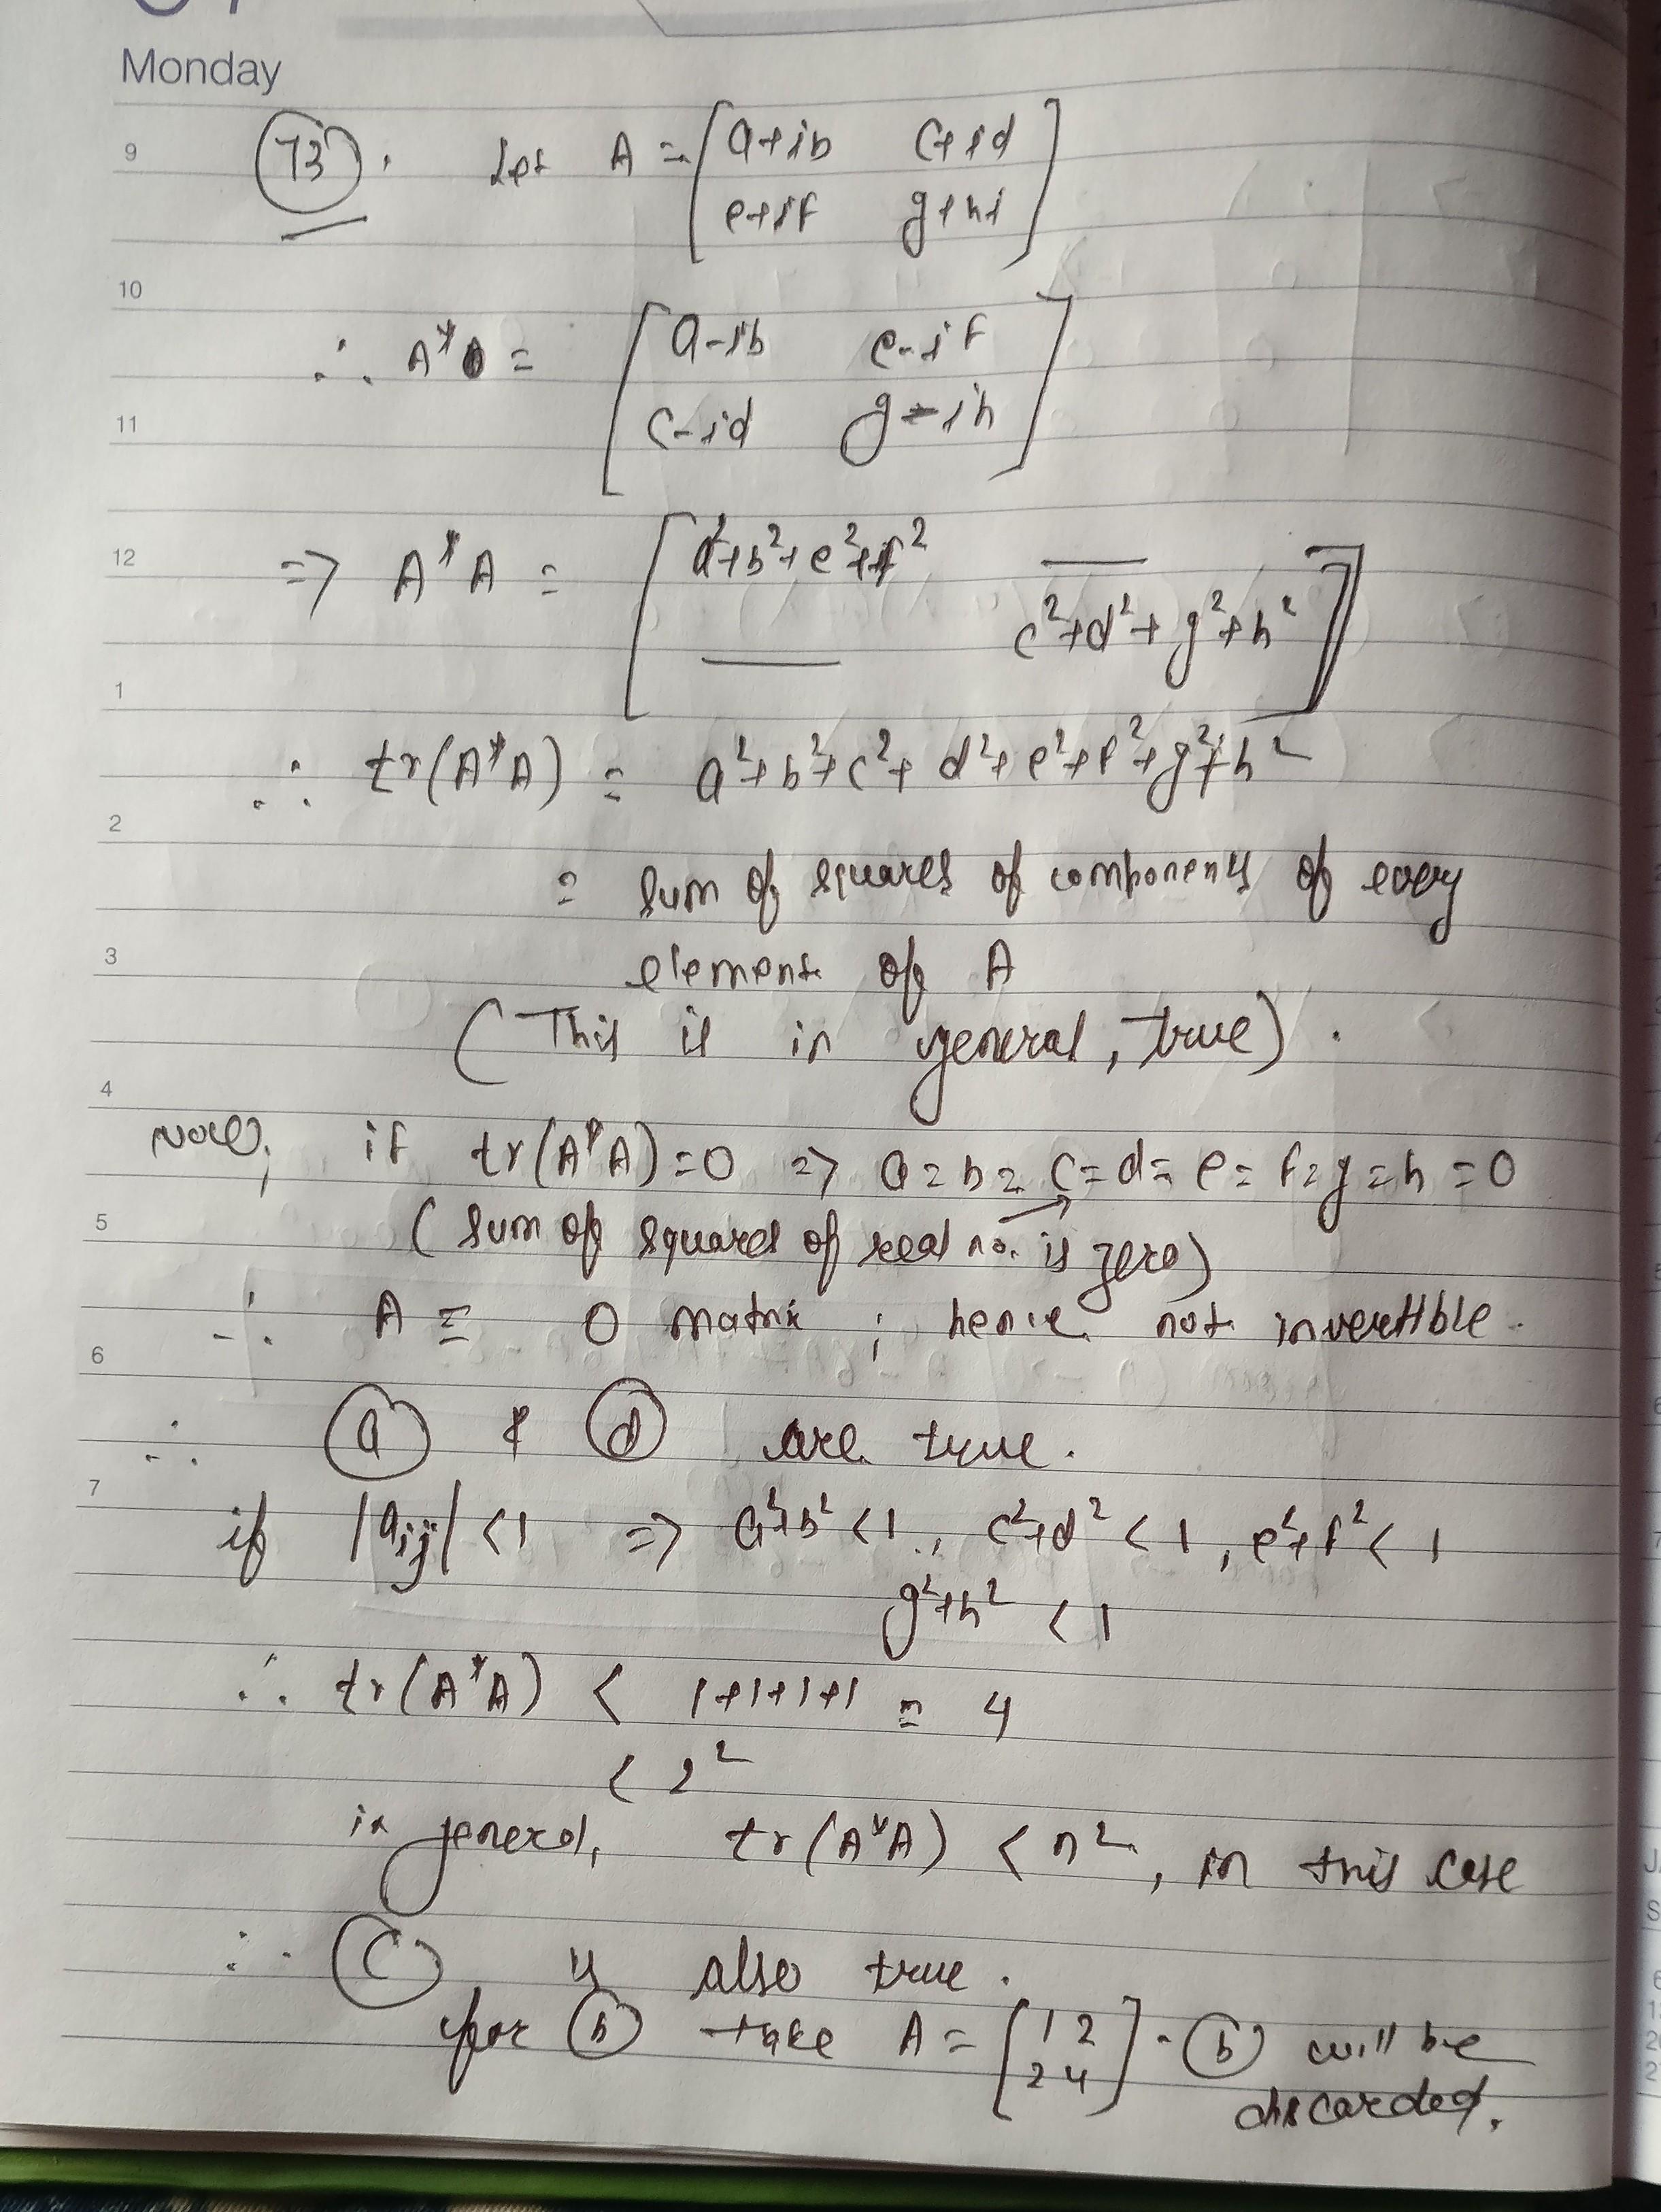 Monday
9
73. Let A = [a+ib c+id
e+if g+hi]
10
∴ A* = [a-ib e-if
11
c-id g-ih]
12
=> A*A = [a²+b²+e²+f² —
— c²+d²+g²+h²]
1
∴ tr(A*A) = a²+b²+c²+d²+e²+f²+g²+h²
2
= sum of squares of components of every
3
element of A
(This is in general, true).
4
Now, if tr(A*A)=0 => a=b=c=d=e=f=g=h=0
5
(sum of squares of real no. is zero)
∴ A = 0 matrix ; hence not invertible.
6
∴ (a) & (d) are true.
7
if |aij|<1 => a²+b²<1, c²+d²<1, e²+f²<1
g²+h²<1
∴ tr(A*A) < 1+1+1+1 = 4
< 2²
in general, tr(A*A) < n², in this case
∴ (c) is also true.
for (b) take A = [1 2
2 4]. (b) will be
discarded.